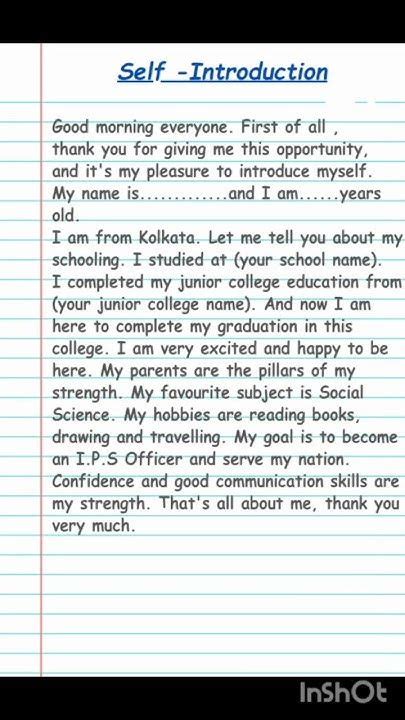 Self -Introduction
Good morning everyone. First of all ,
thank you for giving me this opportunity,
and it's my pleasure to introduce myself.
My name is.............and I am......years
old.
I am from Kolkata. Let me tell you about my
schooling. I studied at (your school name).
I completed my junior college education from
(your junior college name). And now I am
here to complete my graduation in this
college. I am very excited and happy to be
here. My parents are the pillars of my
strength. My favourite subject is Social
Science. My hobbies are reading books,
drawing and travelling. My goal is to become
an I.P.S Officer and serve my nation.
Confidence and good communication skills are
my strength. That's all about me, thank you
very much.
InShOt